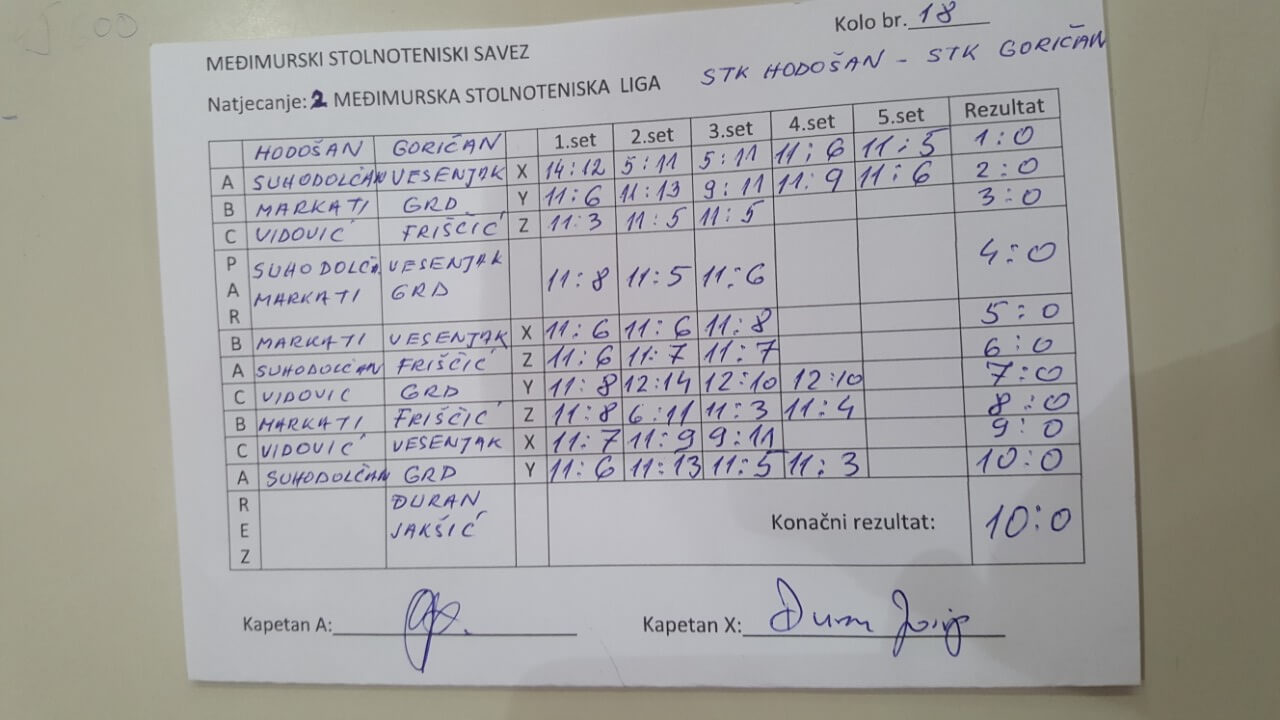 Kolo br. 18
MEĐIMURSKI STOLNOTENISKI SAVEZ
STK HODOŠAN - STK GORIČAN
Natjecanje: 2 MEĐIMURSKA STOLNOTENISKA LIGA
HODOŠAN GORIČAN 1.set 2.set 3.set 4.set 5.set Rezultat
A SUHODOLČAN VESENJAK X 14:12 5:11 5:11 11:6 11:5 1:0
B MARKATI GRD Y 11:6 11:13 9:11 11:9 11:6 2:0
C VIDOVIĆ FRIŠČIĆ Z 11:3 11:5 11:5 3:0
P SUHODOLČA VESENJAK
A MARKATI GRD 11:8 11:5 11:6 4:0
R
B MARKATI VESENJAK X 11:6 11:6 11:8 5:0
A SUHODOLČAN FRIŠČIĆ Z 11:6 11:7 11:7 6:0
C VIDOVIC GRD Y 11:8 12:14 12:10 12:10 7:0
B MARKATI FRIŠČIĆ Z 11:8 6:11 11:3 11:4 8:0
C VIDOVIĆ VESENJAK X 11:7 11:9 9:11 9:0
A SUHODOLČAN GRD Y 11:6 11:13 11:5 11:3 10:0
R ĐURAN
E JAKŠIĆ Konačni rezultat: 10:0
Z
Kapetan A:
Kapetan X: Đuran Josip